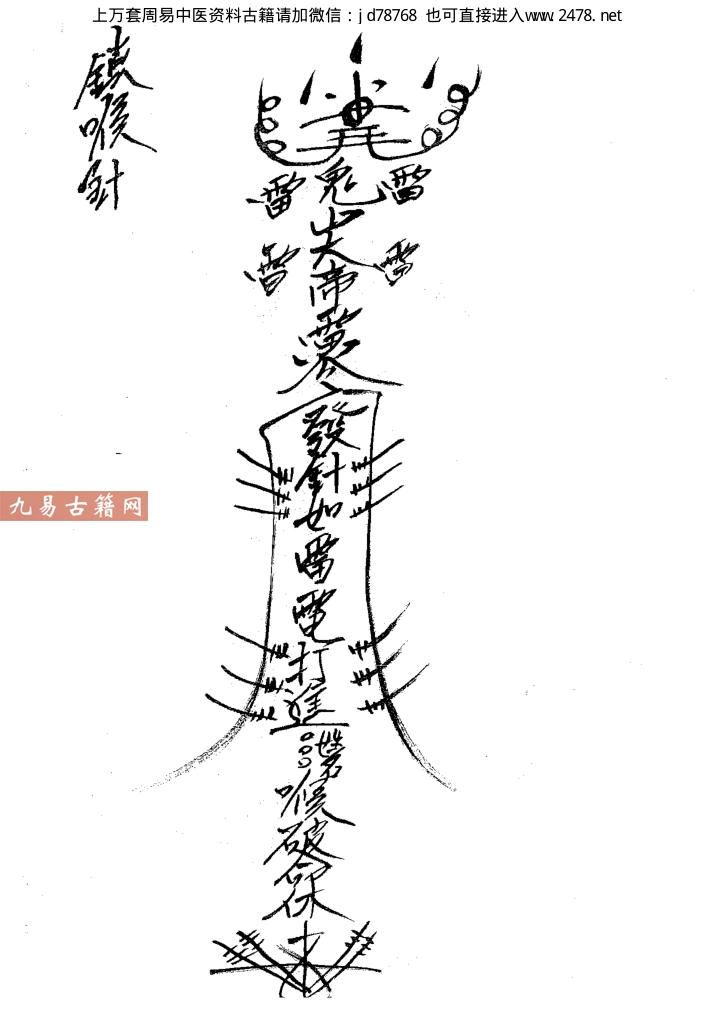 上万套周易中医资料古籍请加微信：jd78768 也可直接进入www.2478.net
鎖喉針
雷 鬼 雷
雷 雷
火帝
發針如雷電打進
姓名
喉破命休
九易古籍网